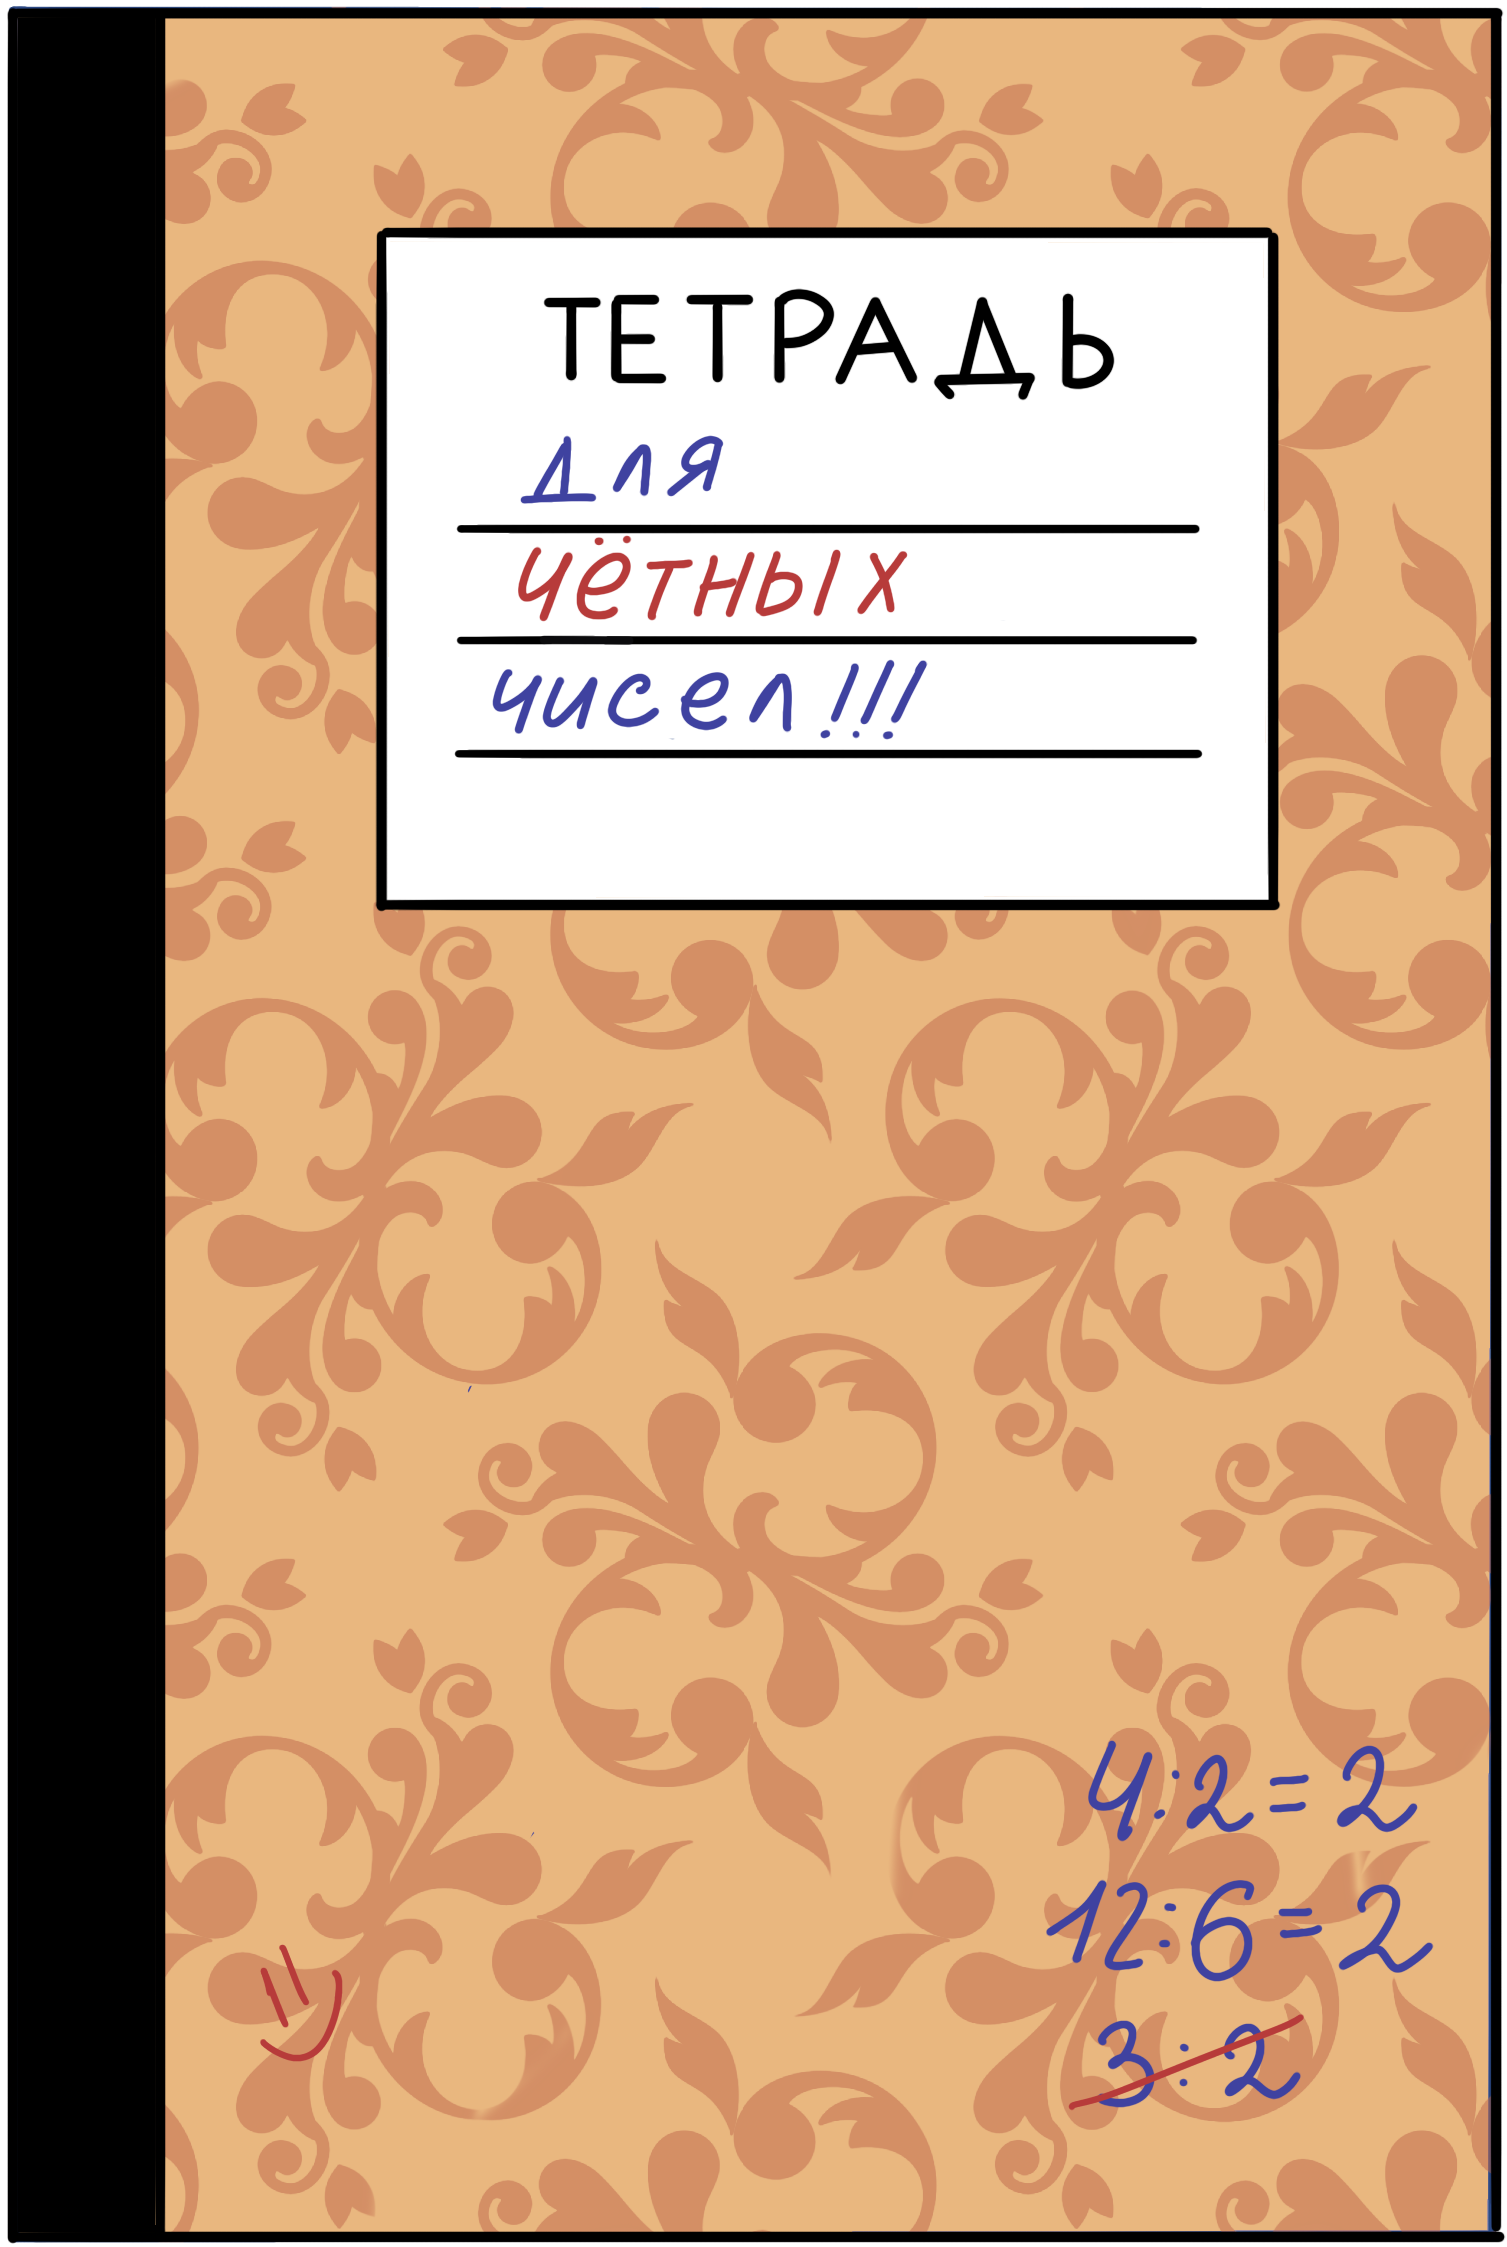 ТЕТРАДЬ
для
чётных
чисел!!!
4:2=2
12:6=2
3:2